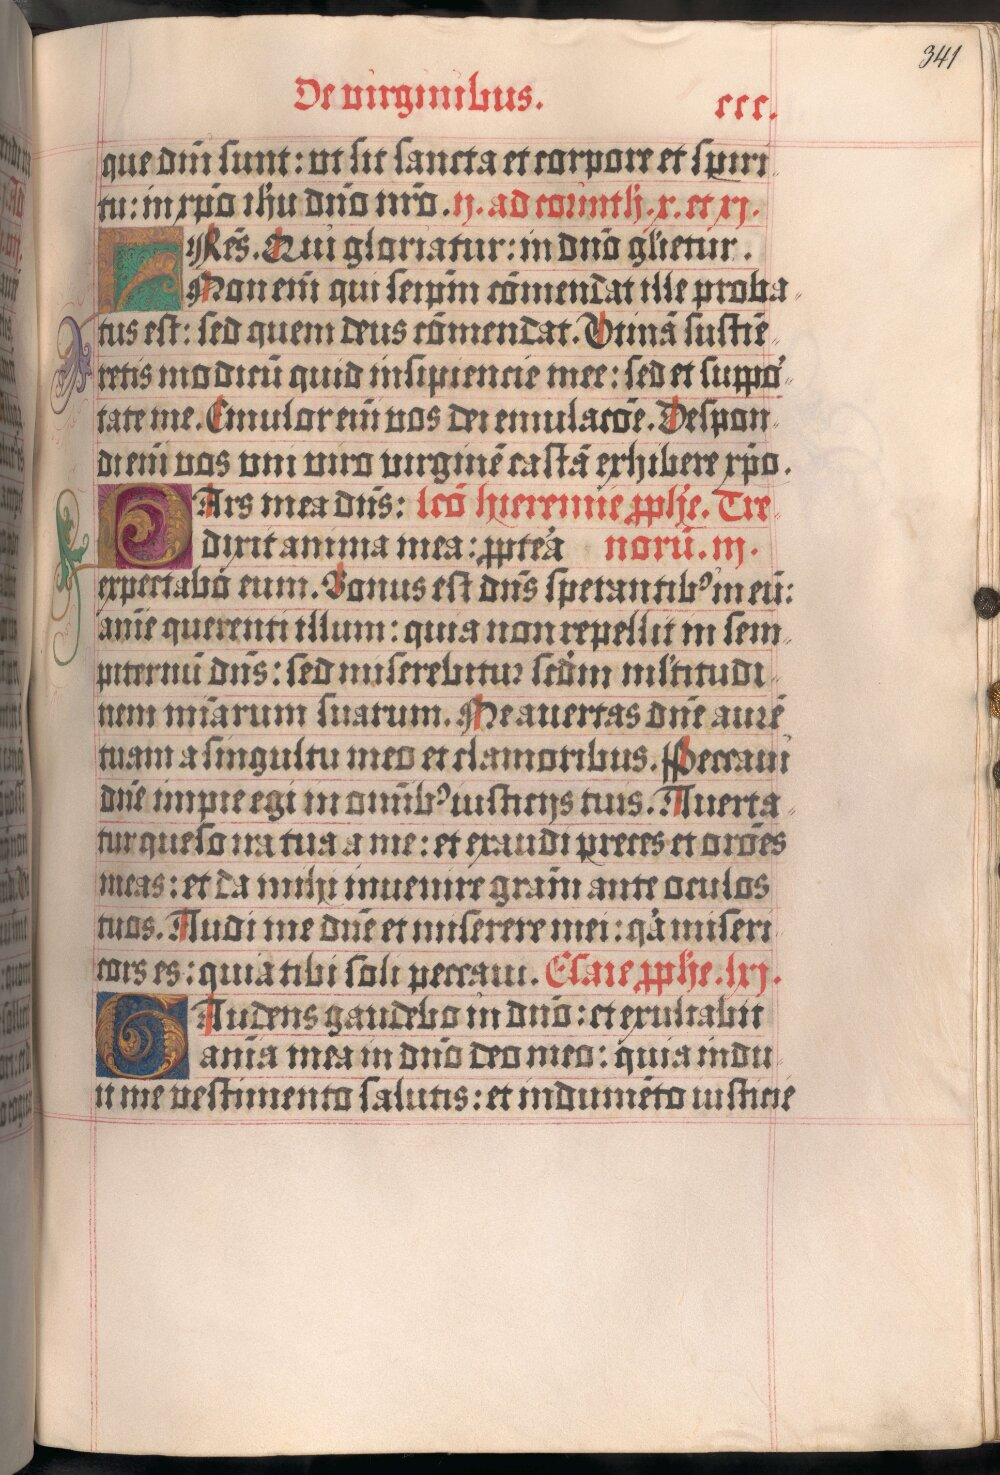 341
De virginibus.
ccc.
que dnī sunt: vt sit sancta et corpore et spiri
tu: in xpō ihu dnō nrō. ij. ad corinth. x. et xj.
FRēs. Qui gloriatur: in dnō gl'ietur.
Non enī qui seip̄m cōmendat ille proba
tus est: sed quem deus cōmendat. Vtinā sustiē
retis modicū quid insipiencie mee: sed et suppo
tate me. Emulor enī vos dei emulacōe. Despon
di enī vos vni viro virginē castā exhibere xpō.
PArs mea dn̄s: lcō hieremie pphe. Tre
dixit anima mea: ppt'ea norū. iij.
expectabo eum. Bonus est dn̄s sperantibꝰ in eū:
anīe querenti illum: quia non repellit in sem
piternū dn̄s: sed miserebitur scd̄m mltitudi
nem mīarum suarum. Ne auertas dn̄e aurē
tuam a singultu meo et clamoribus. Peccaui
dn̄e impie egi in omībꝰ iusticijs tuis. Auerta
tur queso ira tua a me: et exaudi preces et orōes
meas: et da mihi inuenire grām ante oculos
tuos. Audi me dn̄e et miserere mei: qa miseri
cors es: quia tibi soli peccaui. Esaie pphe. lxj.
GAudens gaudebo in dnō: et exultabit
anīa mea in dnō deo meo: quia indu
it me vestimento salutis: et indumēto iusticie